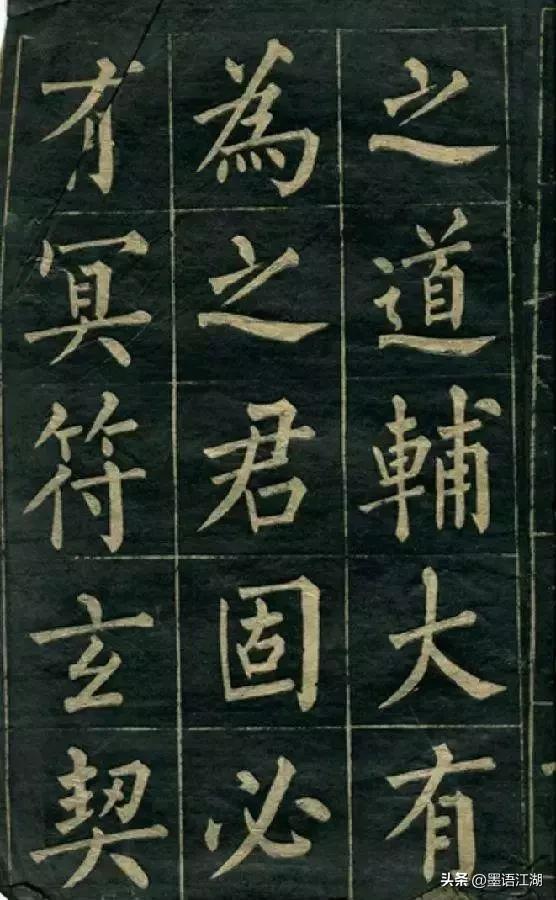 之道輔大有
為之君固必
有冥符玄契
头条@墨语江湖